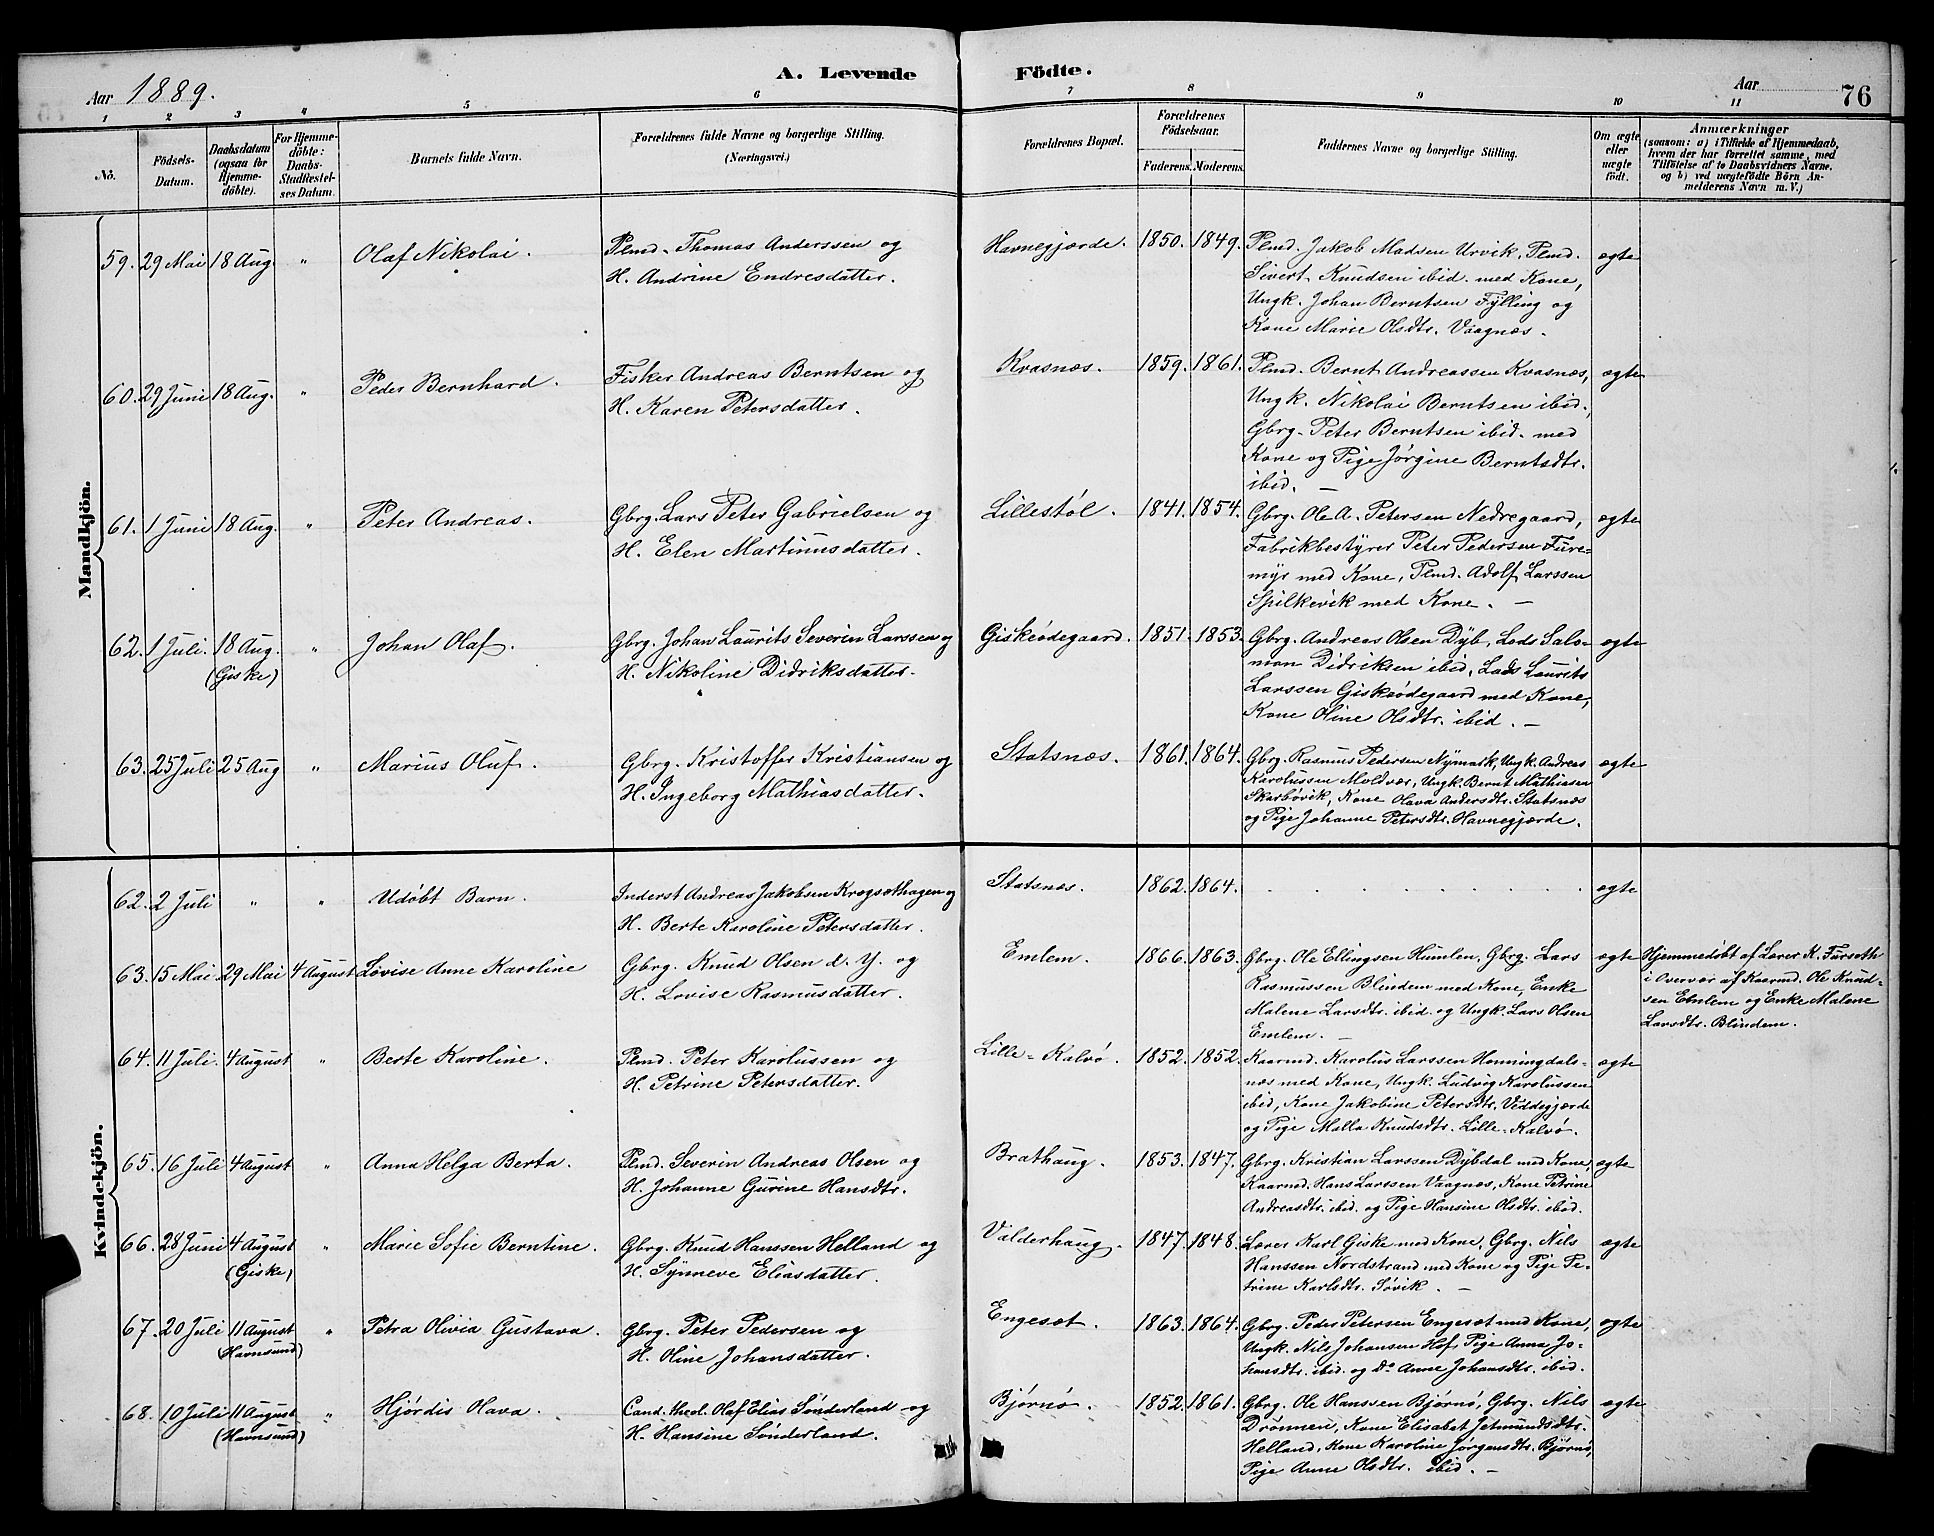 A. Levende Födte.
Aar 1889.
Aar
76
1 2 3 4 5 6 7 8 9 10 11
No.
Födsels-Datum.
Daabsdatum (ogsaa for Hjemmedöbte).
For Hjemmedöbte: Daabs-Stadfæstelses Datum.
Barnets fulde Navn.
Forældrenes fulde Navne og borgerlige Stilling. (Næringsvei.)
Forældrenes Bopæl.
Forældrenes Födselsaar.
Faderens. Moderens.
Faddernes Navne og borgerlige Stilling.
Om ægte eller uægte födt.
Anmærkninger
(saasom: a) i Tilfælde af Hjemmedaab, hvem der har forrettet samme, med Tilföielse af to Daabsvidners Navne. og b) ved uægtefödte Börn Anmelderens Navn m. V.)
Mandkjön.
59. 29 Mai 18 Aug. " Olaf Nikolai. Plmd. Thomas Anderssen og Havnegjærde. 1850. 1849. Plmd. Jakob Madsen Urvik, Plmd. ægte
H. Andrine Endresdatter. Sivert Knudsen ibid. med Kone,
Ungk. Johan Berntsen Fylling og
Kone Marie Olsdtr. Vaagnæs.
60. 29 Juni 18 Aug. " Peder Bernhard. Fisker Andreas Berntsen og Kvasnæs. 1859. 1861. Plmd. Bernt Andreassen Kvasnæs, ægte
H. Karen Petersdatter. Ungk. Nikolai Berntsen ibid.,
Gbrg. Peter Berntsen ibid. med
Kone og Pige Jørgine Berntsdtr.
ibid. —
61. 1 Juni 18 Aug. " Peter Andreas. Gbrg. Lars Peter Gabrielsen og Lillestøl. 1841. 1854. Gbrg. Ole A. Petersen Nedregaard, ægte
H. Elen Martinusdatter. Fabrikbestyrer Peter Pedersen Fure-
myr med Kone, Plmd. Adolf Larssen
Spilkevik med Kone. —
62. 1 Juli. 18 Aug. (Giske) " Johan Olaf. Gbrg. Johan Laurits Severin Larssen og Giskeødegaard. 1851. 1853. Gbrg. Andreas Olsen Dyb, Lods Salo- ægte
H. Nikoline Didriksdatter. mon Didriksen ibid., Lods Laurits
Larssen Giskeødegaard med Kone,
Kone Oline Olsdtr. ibid. —
63. 25 Juli 25 Aug " Marius Oluf. Gbrg. Kristoffer Kristiansen og Statsnæs. 1861. 1864. Gbrg. Rasmus Pedersen Nymark, Ungk. Andreas ægte
H. Ingeborg Mathiasdatter. Karolussen Moldvær, Ungk. Bernt Mathiasen
Skarbøvik, Kone Olava Andersdtr. Statsnæs
og Pige Johanne Petersdtr. Havnegjærde.
Kvindekjön.
62. 2 Juli " " Udøbt Barn. Inderst Andreas Jakobsen Krogsæthagen og Statsnæs. 1862. 1864. . . . . . . . . ægte
H. Berte Karoline Petersdatter.
63. 15 Mai 29 Mai 4 August Lovise Anne Karoline Gbrg. Knud Olsen d. Y. og Emlem. 1866. 1863. Gbrg. Ole Ellingsen Humlen, Gbrg. Lars ægte Hjemmedøbt af Lærer K. Furseth
H. Lovise Rasmusdatter. Rasmussen Blindem med Kone, Enke i Overvær af Kaarmd. Ole Knud-
Malene Larsdtr. ibid. og Ungk. Lars Olsen sen Emlem og Enke Malene
Emlem. — Larsdtr. Blindem.
64. 11 Juli. 4 August " Berte Karoline. Plmd. Peter Karolussen og Lille-Kalvø. 1852. 1852. Kaarmd. Karolus Larssen Honningdals- ægte
H. Petrine Petersdatter. næs med Kone, Ungk. Ludvig Karolussen
ibid, Kone Jakobine Petersdtr. Viddegjærde
og Pige Malla Knudsdtr. Lille-Kalvø.
65. 16 Juli 4 August " Anna Helga Berta. Plmd. Severin Andreas Olsen og Brathaug. 1853. 1847. Gbrg. Kristian Larssen Dybdal med Kone, ægte
H. Johanne Gurine Hansdtr. Kaarmd. Hans Larssen Vaagnæs, Kone Petrine
Andreasdtr. ibid. og Pige Hansine Olsdtr. ibid.
66. 28 Juni 4 August (Giske) " Marie Sofie Berntine. Gbrg. Knud Hanssen Helland og Valderhaug. 1847. 1848. Lærer Karl Giske med Kone, Gbrg. Nils ægte
H. Synneve Eliasdatter. Hanssen Nordstrand med Kone og Pige Pe-
trine Karlsdtr. Søvik. —
67. 20 Juli 11 August (Havnsund) " Petra Olivia Gustava. Gbrg. Peter Pedersen og Engeset. 1863. 1864. Gbrg. Peder Petersen Engeset med Kone, ægte
H. Oline Johansdatter. Ungk. Nils Johansen Hof, Pige Anna Jo-
hansdtr. ibid. og Do Anne Johansdtr. ibid.
68. 10 Juli 11 August (Havnsund) " Hjördis Olava. Cand. theol. Olaf Elias Sønderland og Bjørnø. 1852. 1861. Gbrg. Ole Hanssen Bjørnø, Gbrg. Nils ægte
H. Hansine Sønderland. Drönnen, Kone Elisabet Jetmundsdtr.
Helland, Kone Karoline Jørgensdtr. Bjørnø,
Pige Anne Olsdtr. ibid. —